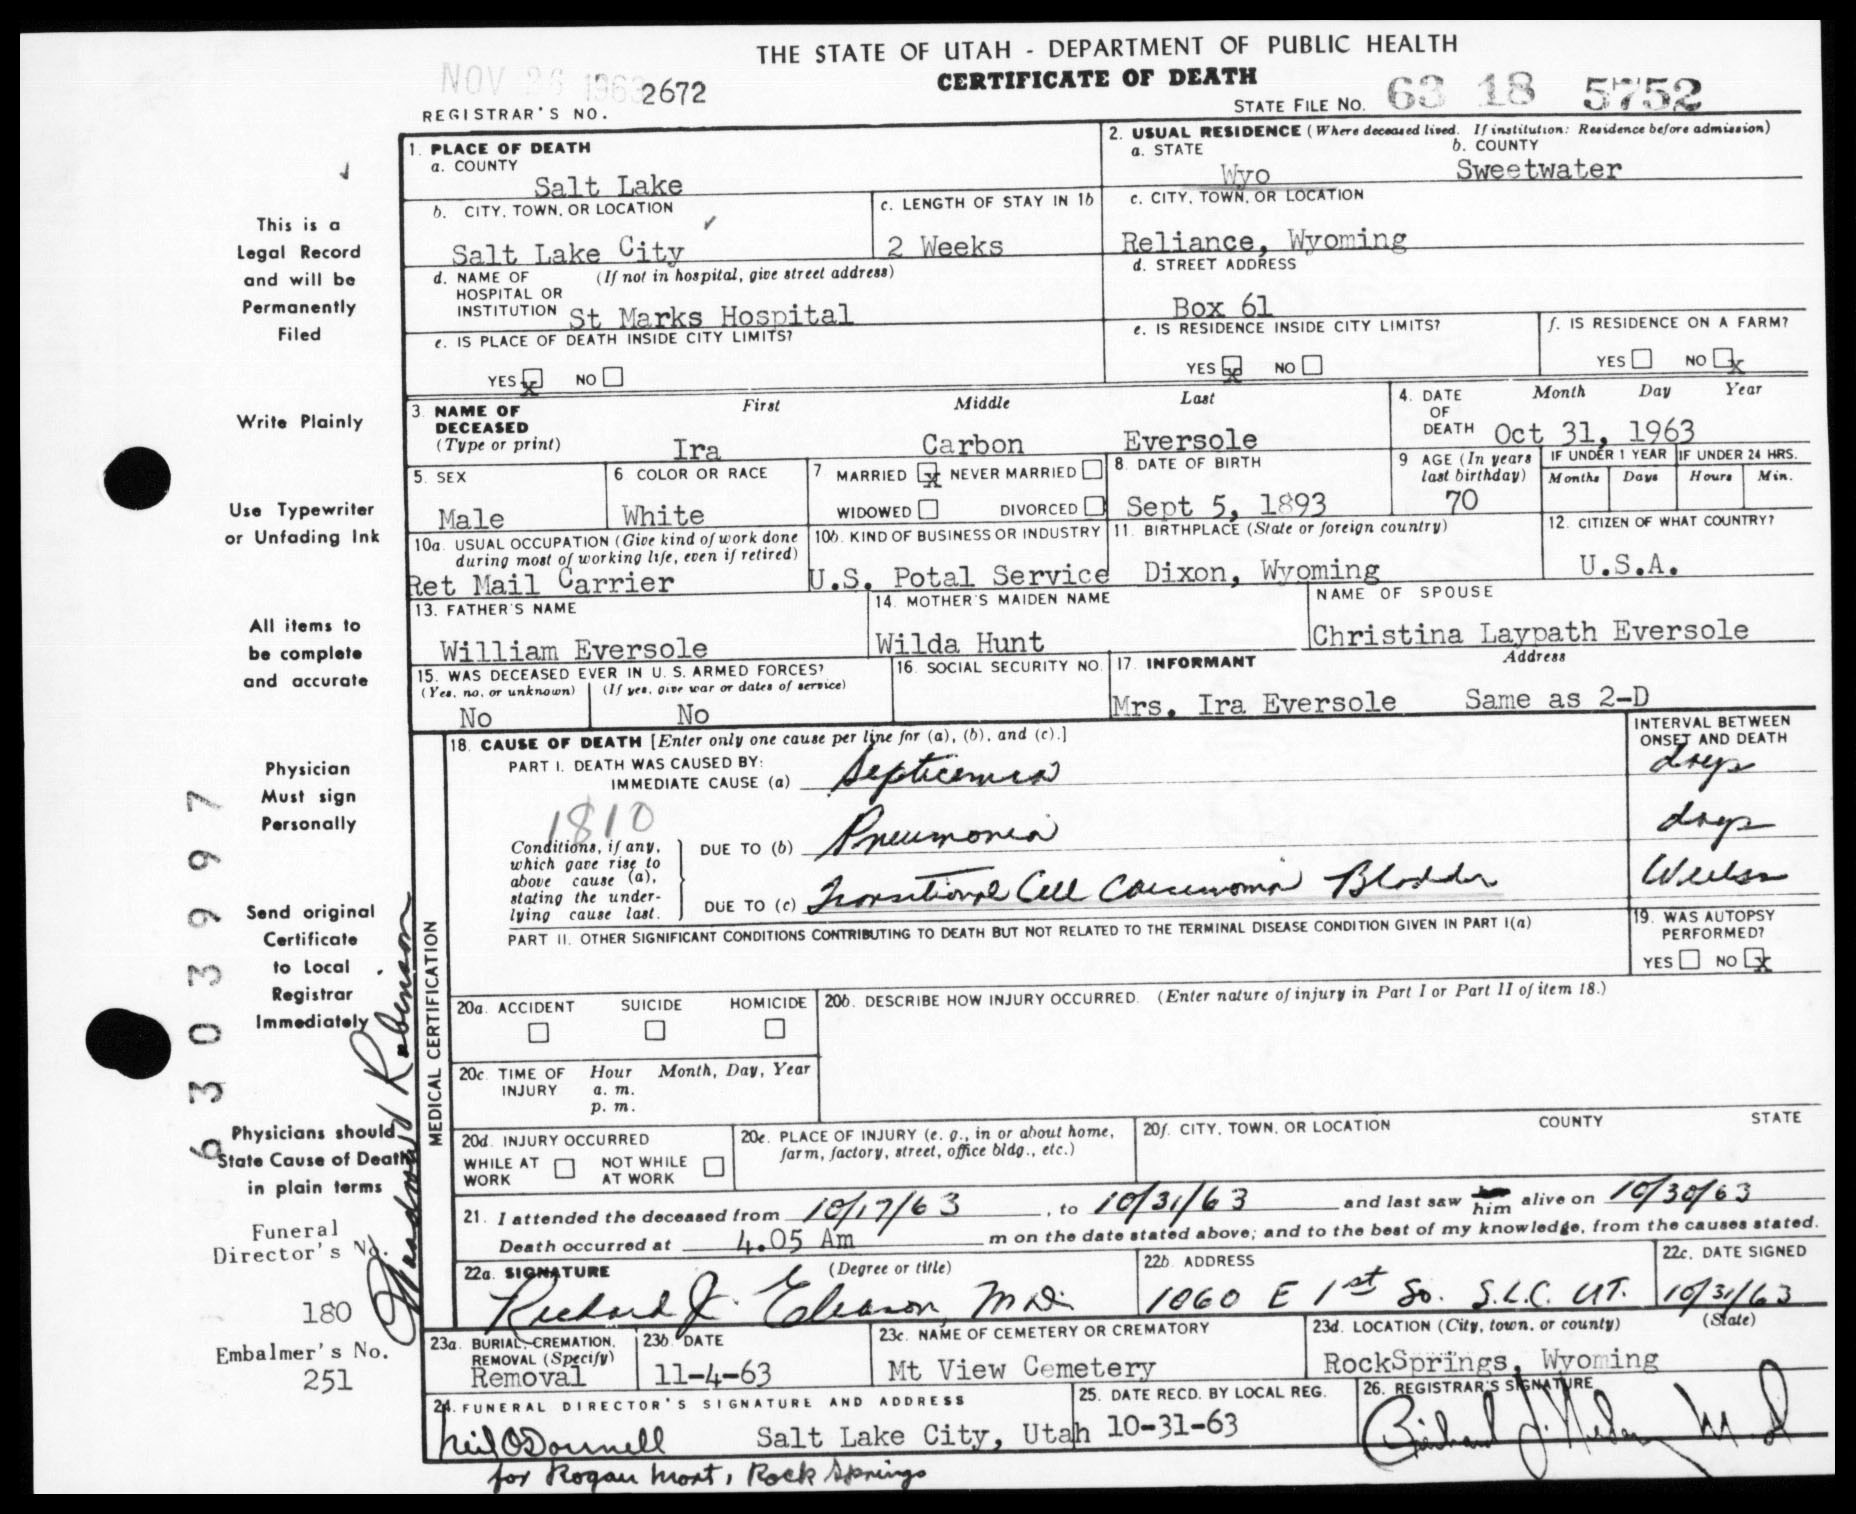 THE STATE OF UTAH - DEPARTMENT OF PUBLIC HEALTH
CERTIFICATE OF DEATH
NOV 26 1963
REGISTRAR'S NO. 2672
STATE FILE NO. 63 18 5752
1. PLACE OF DEATH
a. COUNTY
Salt Lake
2. USUAL RESIDENCE (Where deceased lived. If institution: Residence before admission)
a. STATE b. COUNTY
Wyo Sweetwater
b. CITY, TOWN, OR LOCATION
Salt Lake City
c. LENGTH OF STAY IN 1b
2 Weeks
c. CITY, TOWN, OR LOCATION
Reliance, Wyoming
d. NAME OF (If not in hospital, give street address)
HOSPITAL OR
INSTITUTION St Marks Hospital
d. STREET ADDRESS
Box 61
e. IS PLACE OF DEATH INSIDE CITY LIMITS?
YES x NO
e. IS RESIDENCE INSIDE CITY LIMITS?
YES x NO
f. IS RESIDENCE ON A FARM?
YES NO x
3. NAME OF First Middle Last
DECEASED
(Type or print) Ira Carbon Eversole
4. DATE Month Day Year
OF
DEATH Oct 31, 1963
5. SEX
Male
6 COLOR OR RACE
White
7 MARRIED x NEVER MARRIED
WIDOWED DIVORCED
8. DATE OF BIRTH
Sept 5, 1893
9 AGE (In years
last birthday)
70
IF UNDER 1 YEAR IF UNDER 24 HRS.
Months Days Hours Min.
10a. USUAL OCCUPATION (Give kind of work done
during most of working life, even if retired)
Ret Mail Carrier
10b. KIND OF BUSINESS OR INDUSTRY
U.S. Potal Service
11. BIRTHPLACE (State or foreign country)
Dixon, Wyoming
12. CITIZEN OF WHAT COUNTRY?
U.S.A.
13. FATHER'S NAME
William Eversole
14. MOTHER'S MAIDEN NAME
Wilda Hunt
NAME OF SPOUSE
Christina Laypath Eversole
15. WAS DECEASED EVER IN U.S. ARMED FORCES?
(Yes, no, or unknown) (If yes, give war or dates of service)
No No
16. SOCIAL SECURITY NO.
17. INFORMANT Address
Mrs. Ira Eversole Same as 2-D
MEDICAL CERTIFICATION
18. CAUSE OF DEATH [Enter only one cause per line for (a), (b), and (c).]
INTERVAL BETWEEN
ONSET AND DEATH
PART I. DEATH WAS CAUSED BY:
IMMEDIATE CAUSE (a) Septicemia days
1810
Conditions, if any,
which gave rise to
above cause (a),
stating the under-
lying cause last.
DUE TO (b) Pneumonia days
DUE TO (c) Transitional Cell Carcinoma Bladder Weeks
PART II. OTHER SIGNIFICANT CONDITIONS CONTRIBUTING TO DEATH BUT NOT RELATED TO THE TERMINAL DISEASE CONDITION GIVEN IN PART I(a)
19. WAS AUTOPSY
PERFORMED?
YES NO x
20a. ACCIDENT SUICIDE HOMICIDE
20b. DESCRIBE HOW INJURY OCCURRED. (Enter nature of injury in Part I or Part II of item 18.)
20c. TIME OF Hour Month, Day, Year
INJURY a. m.
p. m.
20d. INJURY OCCURRED
WHILE AT NOT WHILE
WORK AT WORK
20e. PLACE OF INJURY (e. g., in or about home,
farm, factory, street, office bldg., etc.)
20f. CITY, TOWN, OR LOCATION COUNTY STATE
21. I attended the deceased from 10/17/63, to 10/31/63 and last saw him alive on 10/30/63
Death occurred at 4.05 Am m on the date stated above; and to the best of my knowledge, from the causes stated.
22a. SIGNATURE (Degree or title)
Richard J. Eleason, M.D.
22b. ADDRESS
1060 E 1st So. S.L.C. UT.
22c. DATE SIGNED
10/31/63
23a. BURIAL, CREMATION,
REMOVAL (Specify)
Removal
23b. DATE
11-4-63
23c. NAME OF CEMETERY OR CREMATORY
Mt View Cemetery
23d. LOCATION (City, town, or county) (State)
RockSprings, Wyoming
24. FUNERAL DIRECTOR'S SIGNATURE AND ADDRESS
Neil O'Donnell Salt Lake City, Utah
for Rogan Mort, Rock Springs
25. DATE RECD. BY LOCAL REG.
10-31-63
26. REGISTRAR'S SIGNATURE
This is a
Legal Record
and will be
Permanently
Filed
Write Plainly
Use Typewriter
or Unfading Ink
All items to
be complete
and accurate
Physician
Must sign
Personally
Send original
Certificate
to Local
Registrar
Immediately
Physicians should
State Cause of Death
in plain terms
Funeral
Director's No.
180
Embalmer's No.
251
6303997
Robinson